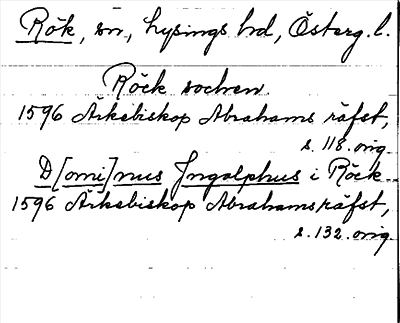 Rök, sn, Lysings hd, Österg. l.
Röck sochen
1596 Ärkebiskop Abrahams räfst,
s. 118. orig.
D[omi]nus Jngolphus i Röck
1596 Ärkebiskop Abrahams räfst,
s. 132. orig